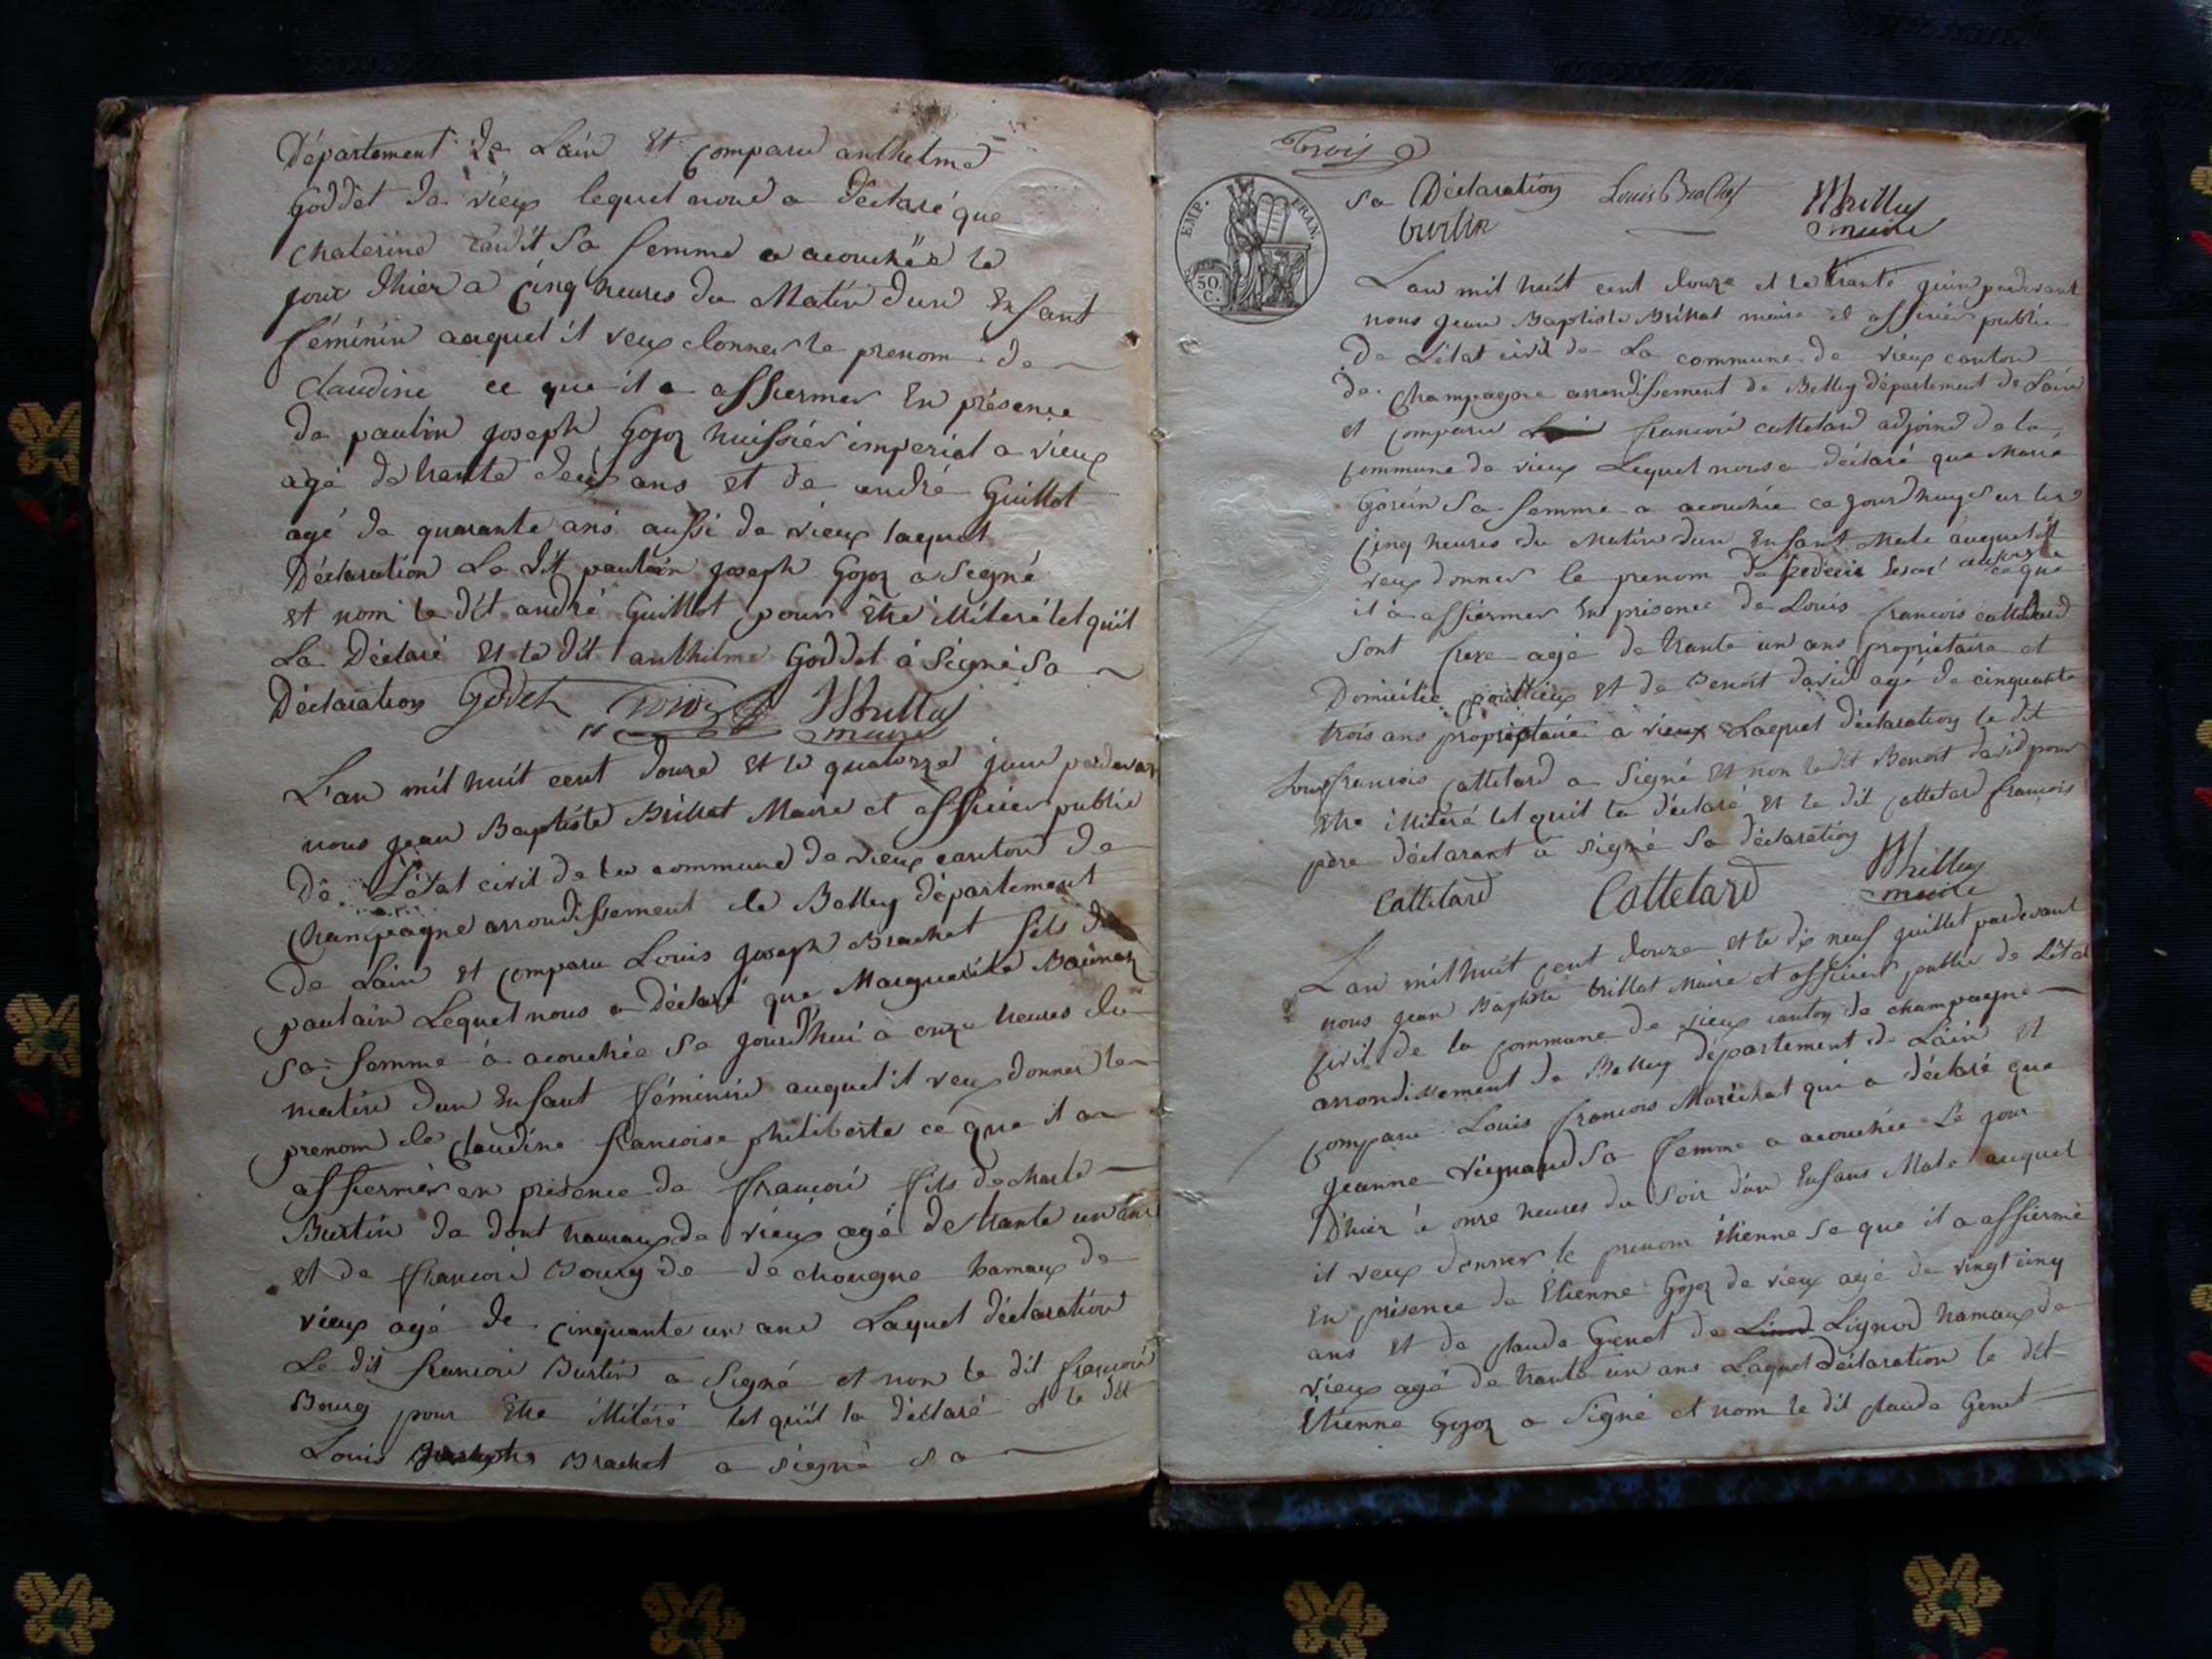 Département de Lain Et comparu anthelme
Goddet de vieux lequel nous a déclaré que
Chaterine sa femme a acouchée le
jour dhier a cinq heures du Matin dun Enfant
féminin auquel il veux donner le prenom de
Claudine ce que il a affiermer En présence
de paulin joseph Gojoz huissiér imperial a vieux
agé de trante deux ans et de andré Guillot
agé de quarante ans aussi de vieux laquel
Déclaration Le dit paulin joseph Gojoz a Segné
et nom le dit andré Guillot pour Etre illiteré tel quil
La Déclaré Et le dit anthelme Goddet á Signé Sa
Déclaration Godet Gojoz Brillat
maire
L'an mil huit cent douze et le quatorze juin pardevan
nous jean Baptiste Brillat Maire et afficier public
de L'état civil de la commune de vieux canton de
Champagne arrondissement de Belley département
de Lain et comparu Louis joseph Brachet fils de
paulain Lequel nous a déclaré que Marguerite
sa femme á acouchée Se jourd'hui a onze heures du
matin dun Enfant féminin auquel il veux donner le
prenom de Claudine francoise philiberte ce que il a
affiermér en présence de francoi fils de charle
Burtin de dont hamaux de vieux agé de trante un ans
et de francoi Bourg de de chougne hamaux de
vieux agé de cinquante un ans Laquel déclaration
Le dit francoi Burtin a Segné et non le dit francoi
Bourg pour Etre illitéré tel quil la déclaré et le dit
Louis Brachet a signé sa
Trois
EMP. FRAN.
50. C.
Sa Déclaration Louis Brachet Brillat
burtin maire
Lan mil huit cent douze et le trante juin pardevant
nous jean Baptiste Brillat maire et afficier public
De L'état civil de La commune de vieux canton
de Champagne arrondissement de Belley département de Lain
et comparu francoi cattelard adjoind de la
commune de vieux Lequel nous a déclaré que Marie
Gorcin Sa femme a acouchée ce jourdhuy Sur les
Cinq heures du Matin dun Enfant Male auquel il
veux donner le prenom de frederic Cesar ce que
il á affiermer En présence de Louis francois cattelard
Sont frere agé de trante un ans propriétaire et
Domicilié et de Benoit david agé de cinquante
trois ans propriétaire a vieux Laquel déclaration le dit
Louis francois Cattelard a Signé Et non le dit Benoit david pour
Etre illiteré tel quil la déclaré et le dit Cattelard francois
père déclarant a signé Sa déclaration
Cattelard Cattelard Brillat
maire
L'an mil huit cent douze et le dix neuf juillet pardevant
nous jean Baptiste brillat Maire et officier public de L'état
Civil de la commune de vieux canton de champagne
arrondissement de Belley département de Lain et
comparu Louis francois Maréchal qui a déclaré que
jeanne Vignaud Sa femme a acouchée Le jour
D'hier á onze heures du Soir d'un Enfans Male auquel
il veux donner le prenom étienne Se que il a affiermé
En présence de Etienne Gojoz de vieux agé de vingt cinq
ans et de claude Genet de Lignod hamaux de
vieux agé de trante un ans Laquel déclaration le dit
Etienne Gojoz a Signé et nom le dit claude Genet